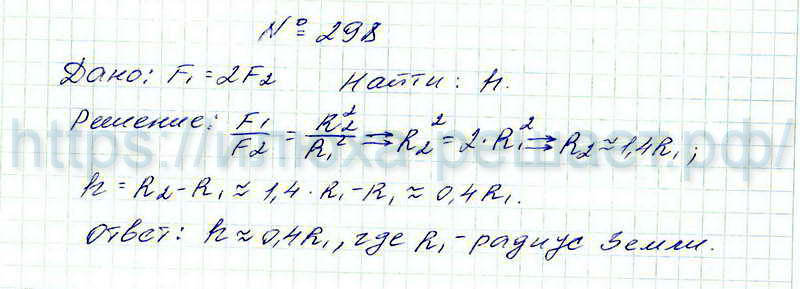 № 298
Дано: F₁ = 2F₂ Найти: h.
Решение: F₁/F₂ = R₂²/R₁² ⇒ R₂² = 2·R₁² ⇒ R₂ ≈ 1,4R₁;
h = R₂ - R₁ ≈ 1,4·R₁ - R₁ ≈ 0,4R₁.
Ответ: h ≈ 0,4R₁, где R₁ - радиус Земли.